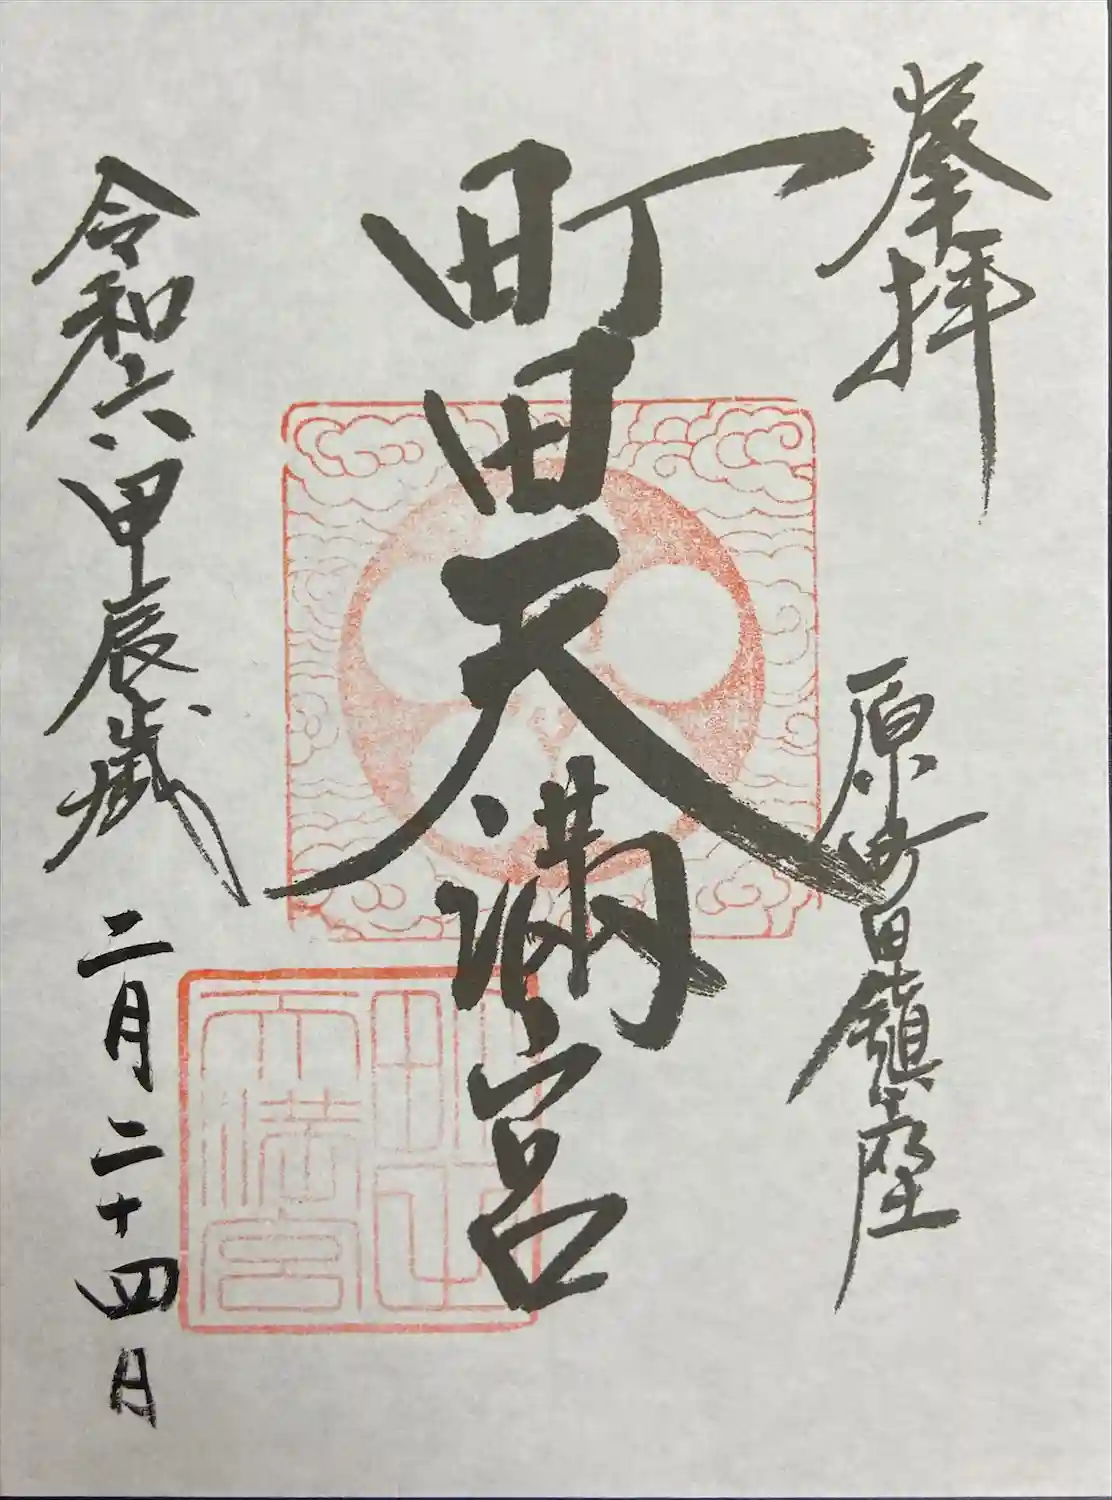 奉拝
原町田鎮座
町田天満宮
令和六甲辰歳
二月二十四日
町田天満宮